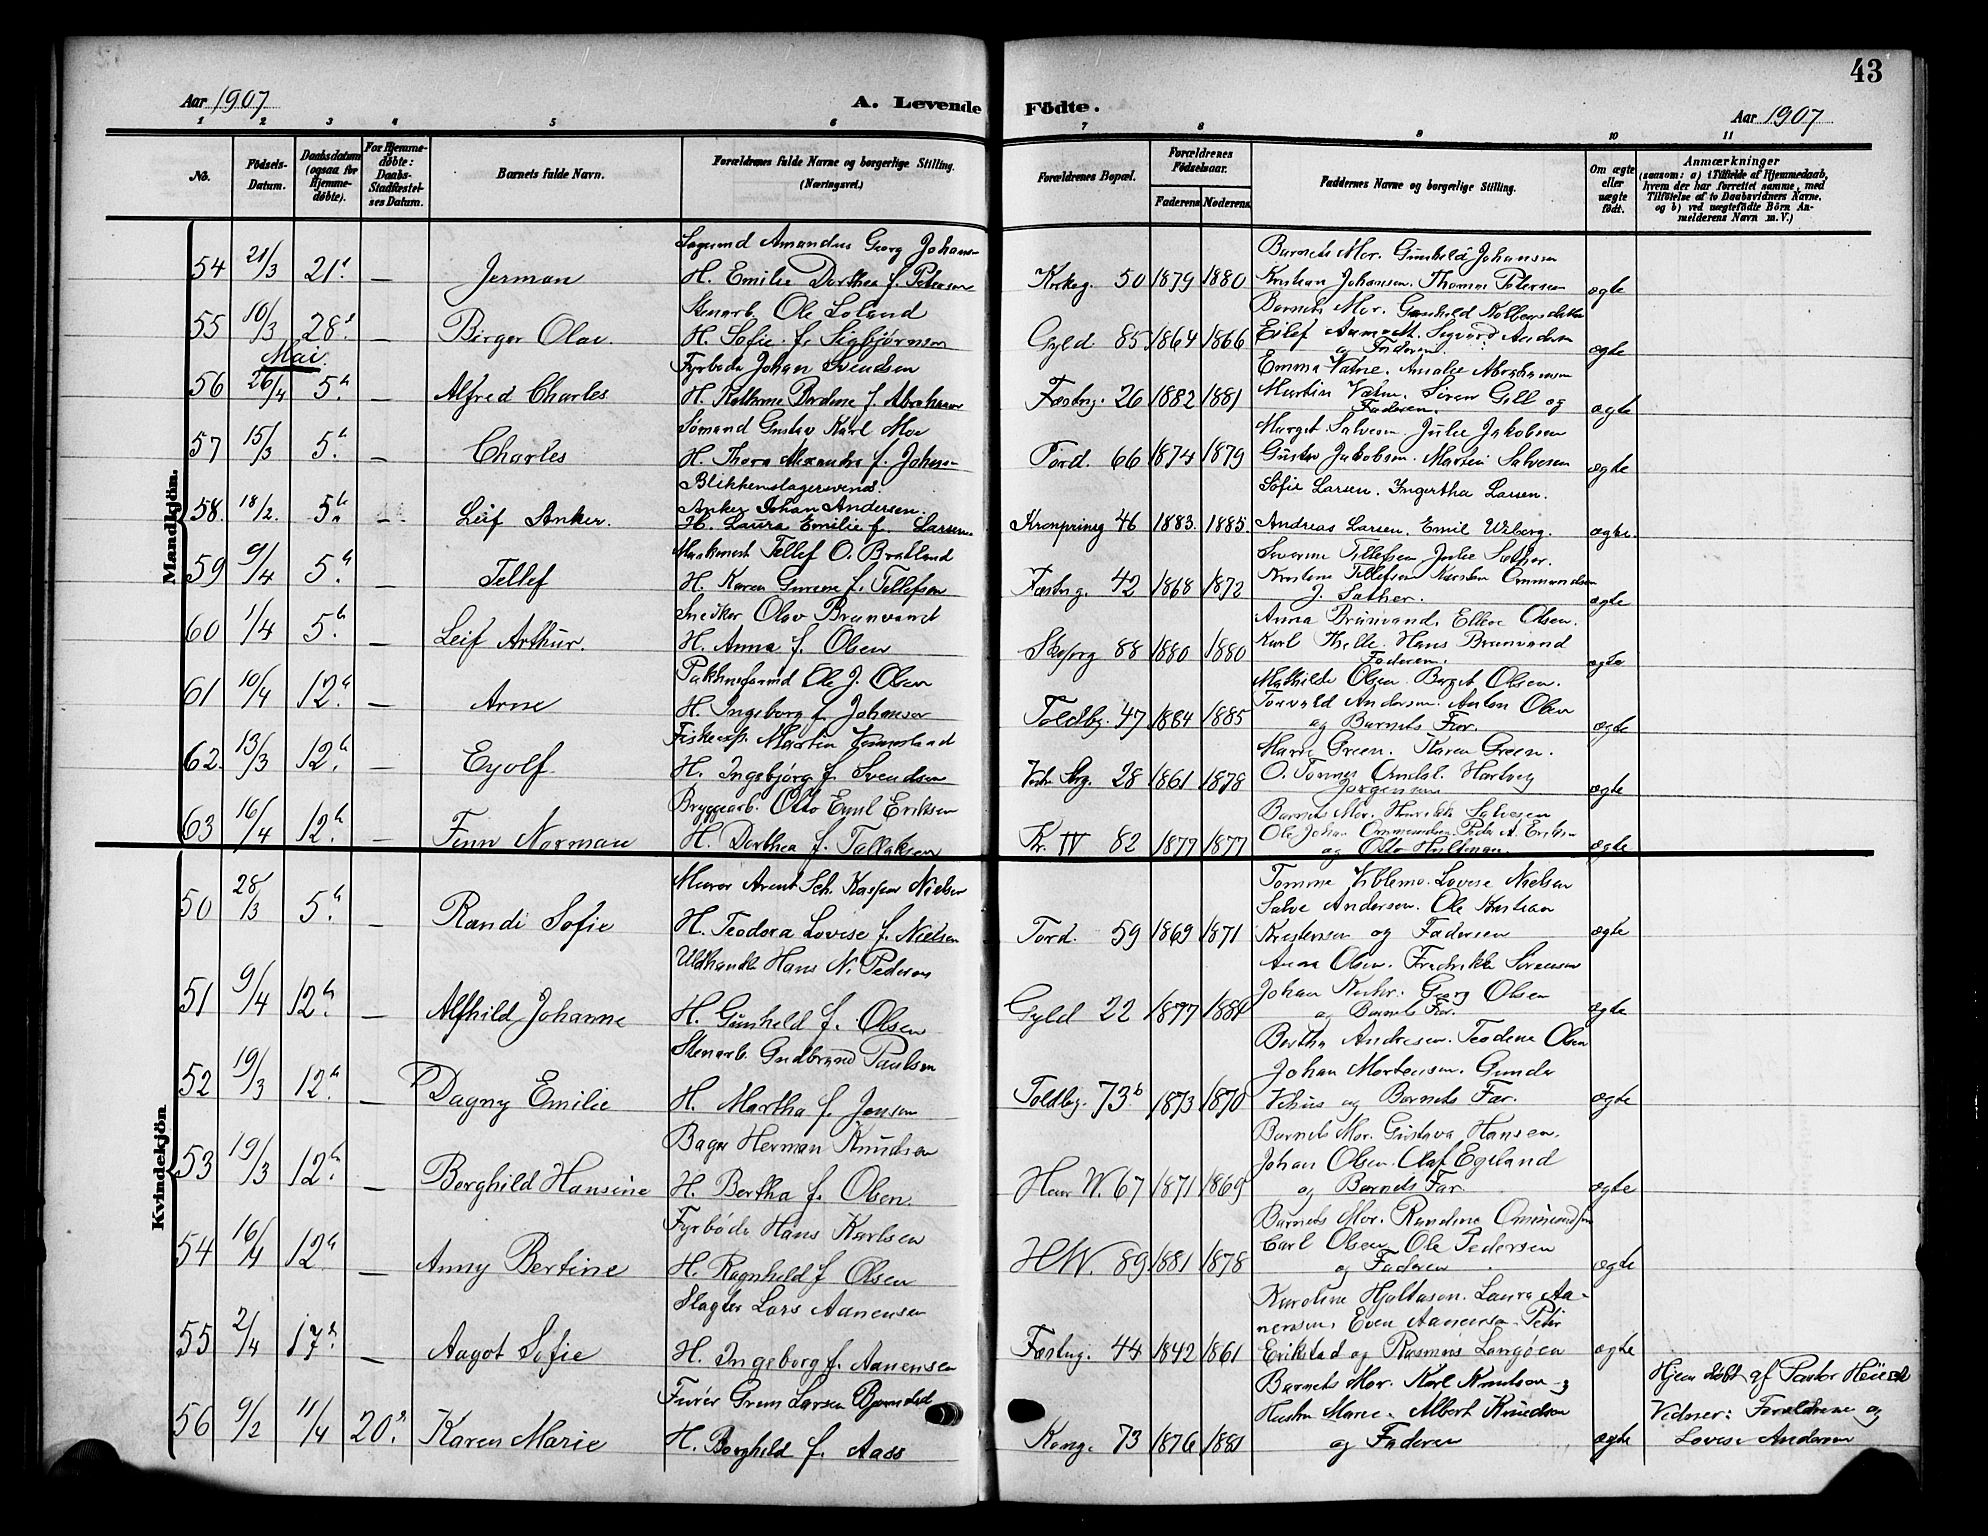 43
Aar 1907
A. Levende Födte.
Aar 1907
1 2 3 4 5 6 7 8 9 10 11
No.
Födsels-Datum.
Daabsdatum (ogsaa for Hjemmedöbte).
For Hjemmedöbte: Daabs-Stadfæstelses Datum.
Barnets fulde Navn.
Forældrenes fulde Navne og borgerlige Stilling. (Næringsvei.)
Forældrenes Bopæl.
Forældrenes Födselsaar.
Faderens Moderens
Faddernes Navne og borgerlige Stilling.
Om ægte eller uægte födt.
Anmærkninger
(saasom: a) i Tilfælde af Hjemmedaab, hvem der har forrettet samme, med Tilföielse af to Daabsvidners Navne, og b) ved uægtefödte Börn Anmelderens Navn m. V.)
Mandkjön.
Amandus Georg Johansen Barnets Mor. Gunhild Johansen
54 21/3 21 — Jerman H. Emilie Dorthea f. Petersen 50 1879 1880 Kristian Johansen. Thomas Petersen ægte
Stenarb. Ole Loland Barnets Mor. Gunhild
55 10/3 28 Birger Olav H. Sofie f. Sigbjørnsen Gyld 85 1864 1866 Eilef Sigvard Andersen og Faderen ægte
Mai.
Fyrbøder Johan Svendsen Emma Vatne. Amalie Abrahamsen
56 26/4 5 — Alfred Charles H. f. Abrahamsen Fæstng. 26 1882 1881 Martin Søren Gill og Faderen. ægte
Sømand Gustav Karl Moe Marget Salvesen. Julie Jakobsen
57 15/3 5 — Charles H. Thora Alexandra f. Johnsen Tord. 66 1874 1879 Gustav Jakobsen. Martin Salvesen ægte
Blikkenslagersvend. Sofie Larsen. Ingertha Larsen.
Anker Johan Andersen.
58. 18/2. 5 — Leif Anker. H. Laura Emilie f. Larsen Kronprinsg 46 1883. 1885. Andreas Larsen. Emil Wiberg. ægte.
Tellef O. Bratland Severine Tellefsen Julie Sæther.
59 9/4 5 — Tellef H. Karen Gurine f. Tellefsen Fæstng. 42 1868 1872 Kristine Tellefsen Karsten Ommundsen J. Sæther. ægte
Snedker Olav Brunvand Anna Brunvand. Ellen Olsen.
60 1/4 5 — Leif Arthur. H. Anna f. Olsen 88 1880 1880 Karl Hans Brunvand Faderen. ægte
Ole J. Olsen Mathilde Olsen. Berget Olsen.
61 10/4 12 — Arne H. Ingeborg f. Johansen Toldbg. 47 1884 1885 Torvald Andersen. Anton Olsen og Barnets Far. ægte
Fiskeexp. Martin Marie Green. Karen Green.
62. 13/3 12 — Eyolf H. Ingebjørg f. Svendsen 28 1861 1878 O. Tønnes Hartvig Jørgensen ægte
Bryggearb. Otto Emil Eriksen Barnets Mor. Henrikke Salvesen
63 16/4 12 — Finn Norman H. Dorthea f. Tallaksen Kr. IV 82 1877 1877 Ole Johan Ommundsen. Peder A. Eriksen og Otto Hultman. ægte
Kvindekjön
Murer Arent Sch. Kasper Nielsen Tomme Viblemo. Lovise Nielsen
50 28/3 5 — Randi Sofie H. Teodora Lovise f. Nielsen Tord. 59 1869 1871 Salve Andersen. Ole Kristian Kristensen og Faderen ægte
Uldhandler Hans N. Pedersen Anna Olsen. Fredrikke Sørensen
51 9/4 12 — Alfhild Johanne H. Gunhild f. Olsen Gyld 22 1877 1884 Johan Georg Olsen og Barnets Far. ægte
Stenarb. Gudbrand Paulsen Bertha Andresen. Teodine Olsen
52 19/3 12 — Dagny Emilie H. Martha f. Jensen Toldbg. 73b 1873 1870 Johan Mortensen. Gunder Vehus og Barnets Far. ægte
Bager Herman Knudsen Barnets Mor. Gustava Hansen.
53 19/3 12 — Borghild Hansine H. Bertha f. Olsen. Henr W. 67 1871 1869 Johan Olsen. Olaf Egeland og Barnets Far. ægte
Fyrbøder Hans Karlsen Barnets Mor. Randine Ommundsen
54 16/4 12 — Anny Bertine H. Ragnhild f. Olsen H W. 89 1881 1878 Carl Olsen Ole Pedersen og Faderen ægte
Slagter Lars Aanensen Karoline Hjaltason. Laura Aanensen,
55 2/4 17 — Aagot Sofie H. Ingeborg f. Aanensen Fæstng. 44 1842 1861 Even Aanensen. Peter Erikstad og Rasmus Langøen ægte
Furér Grem Larsen Barnets Mor. Karl Knudsen og
56 9/2 11/4 20 Karen Marie H. Borghild f. Aass Kong. 73 1876 1881 Hustru Marie. Albert Knudsen og Faderen ægte
Hjemdøbt af Pastor
Vidner: Forældrene og
Lovise Andersen